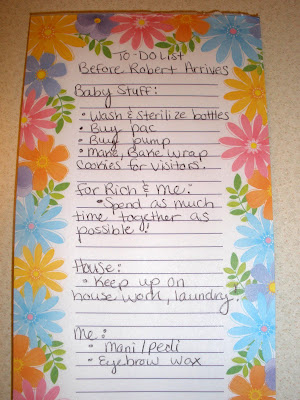 TO-DO LIST
Before Robert Arrives
Baby Stuff:
• Wash & Sterilize bottles
• Buy pac
• Buy pump
• Make, Bake Wrap
Cookies for Visitors.
For Rich & Me:
• Spend as much
time together as
possible!!
House:
• Keep up on
house work, laundry!
Me:
• Mani/pedi
• Eyebrow wax